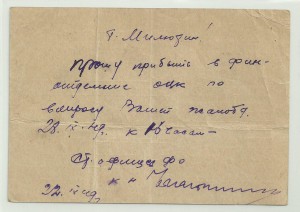 Т. Милюзин!
Прошу прибыть в фин-
отделение ОЦК по
вопросу Вашей жалобы
28.IX.49. к 10 часам –
Ст. офицер ФО
к-н
22.IX.49